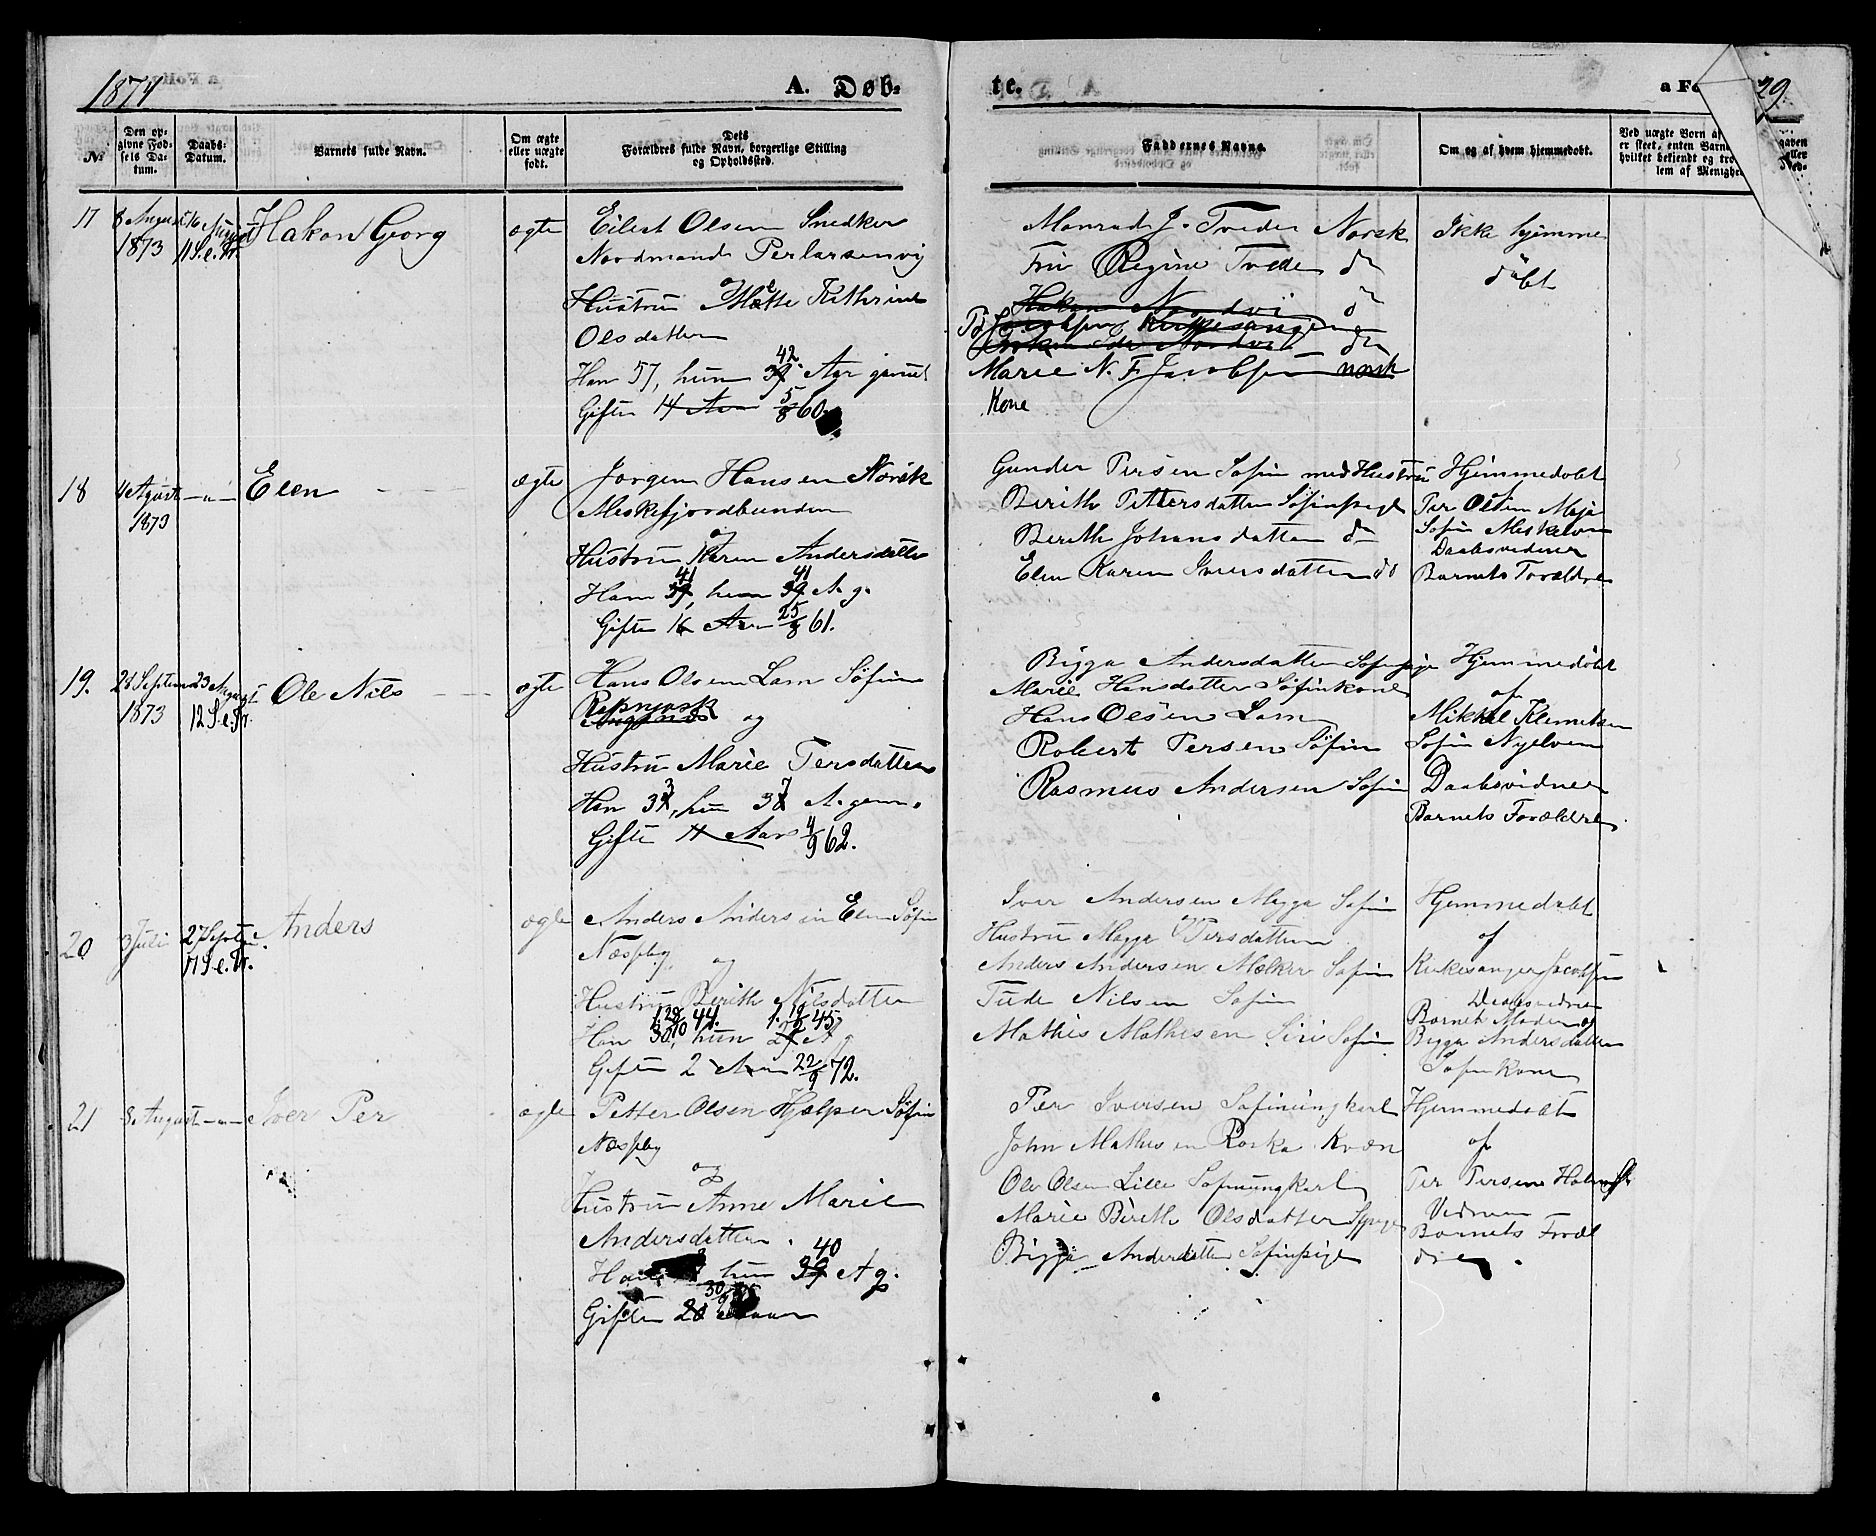 1874
A. Døb-
te.
29.
No
Den op-
givne Fød-
sels Da-
tum.
Daabs-
Datum.
Barnets fulde Navn.
Om ægte
eller uægte
født.
Dets
Forældres fulde Navn, borgerlige Stilling
og Opholdssted.
Faddernes Navne.
Om og af hvem hjemmedøbt.
Ved uægte Born
er skeet, enten
hvilket bekjendt og
lem af
17
8 August
1873
16 August
11 S. e. Tr.
Hakon Georg
ægte
Eilert Olsen Snedker
Nordmand Perlarsenvig
Hustru Mette Kathrine
Olsdatter
Han 57, hun 39 42 Aar gammel
Gifte 14 Aar 5/8 60
Monrad J. Tvede Norsk
Fru Regine Tvede do
Hakon Nordvi do
Jacobsen Kirkesanger
Marie N. F. Jacobsen norsk
Kone
Ikke hjemme
døbt
18
4 August
1873
Elen
ægte
Jørgen Hansen Norsk
Meskefjordbunden
og
Hustru Karen Andersdatter
Han 39 41, hun 39 41 A. g.
Gifte 16 Aar 25/8 61.
Gunder Persen Søfin med Hustru
Berith Pettersdatter Søfinpige
Berith Johansdatter do
Elen Karen Iversdatter do
Hjemmedøbt
Per Olsen Maja
Søfin Meskelven
Daabsvidner
Barnets Forældre
19.
Septem
1873
23 August
12 S. e. Tr.
Ole Nils
ægte
Hans Olsen Lam Søfin
og
Hustru Marie Persdatter
Han 3, hun 37 A. gam.
Gifte 11 Aar 4/9 62.
Bigga Andersdatter Søfinpige
Marie Hansdatter Søfinkone
Hans Olsen Lam
Robert Persen Søfin
Rasmus Andersen Søfin
Hjemmedøbt
af
Mikkel Klemetsen
Søfin Nyelven
Daabsvidner
Barnets Forældre
20
3 Juli
27 Septbr.
17 S. e. Tr.
Anders
ægte
Anders Andersen Elen Søfin
Næsseby
og
Hustru Berith Nilsdatter
Han 30, hun A g
Gifte 2 Aar 22/9 72.
Iver Andersen Magga Søfin
Hustru Magga Persdatter
Anders Andersen Mælker Søfin
Tude Nilsen Søfin
Mathis Mathisen Siri Søfin
Hjemmedøbt
af
Kirkesanger Jacobsen
Daabsvidner
Barnets Moder og
Bigga Andersdatter
Søfinkone
21
8 August
Iver Per
ægte
Petter Olsen Hjælper Søfin
Næsseby
og
Hustru Anne Marie
Andersdatter
hun 39 40 A g.
Gifte
Per Iversen Søfinungkarl
John Mathisen Roska Kvæn
Ole Olsen Lille Søfinungkarl
Marie Berith Olsdatter
Bigga Andersdatter Søfinpige
Hjemmedøbt
af
Per Persen
Vidner
Barnets Foræl
dre.